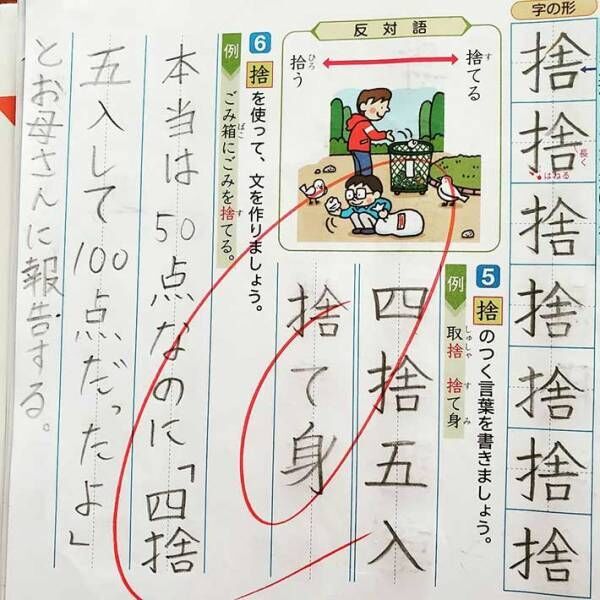 字の形
捨
捨
長く
はねる
捨
捨
捨
捨
捨
反対語
捨てる
す
拾う
ひろ
5 捨のつく言葉を書きましょう。
例 取捨 捨て身
しゅしゃ す み
四捨五入
捨て身
6 捨を使って、文を作りましょう。
例 ごみ箱にごみを捨てる。
ばこ す
本当は50点なのに「四捨
五入して100点だったよ」
とお母さんに報告する。